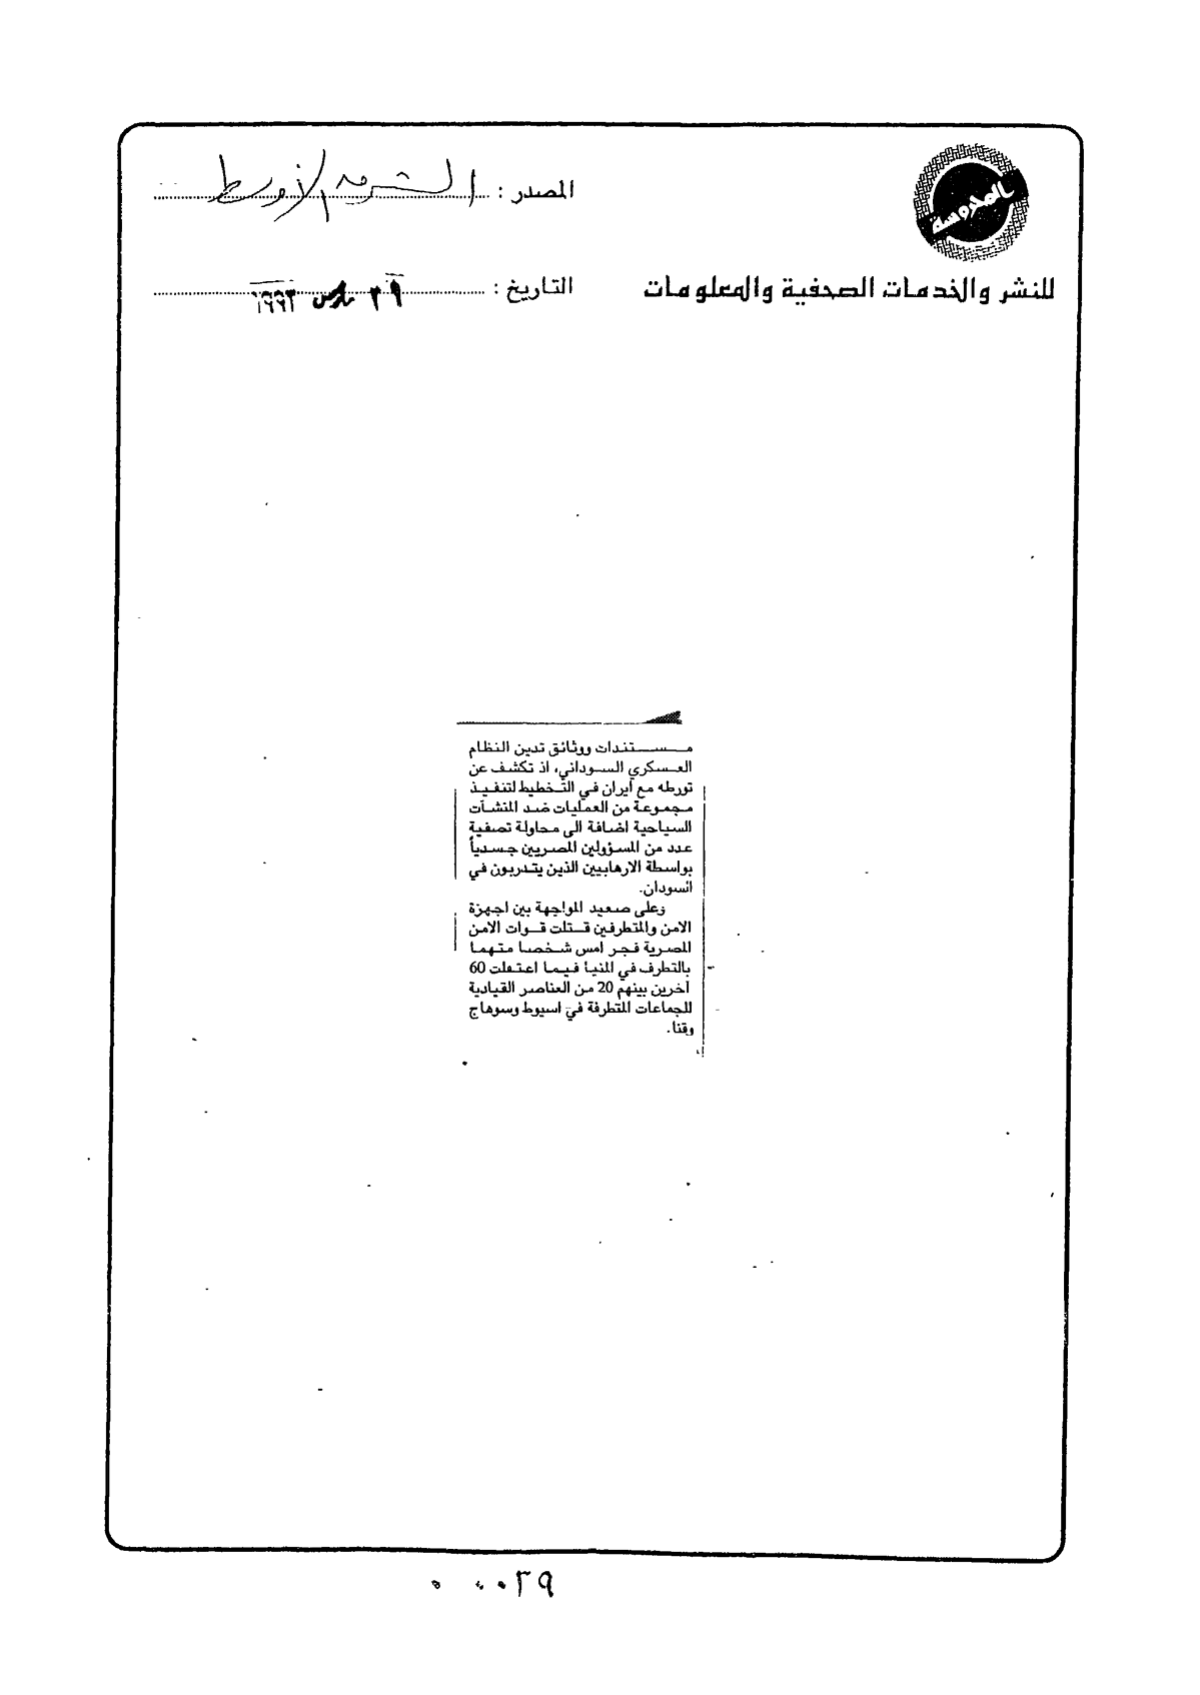 المحروسة
للنشر والخدمات الصحفية والمعلومات
المصدر : الشرق الأوسط
التاريخ : ٢٩ مارس ١٩٩٣
مستندات ووثائق تدين النظام
العسكري السوداني، اذ تكشف عن
تورطه مع ايران في التخطيط لتنفيذ
مجموعة من العمليات ضد المنشآت
السياحية اضافة الى محاولة تصفية
عدد من المسؤولين المصريين جسدياً
بواسطة الارهابيين الذين يتدربون في
السودان.
وعلى صعيد المواجهة بين اجهزة
الامن والمتطرفين قتلت قوات الامن
المصرية فجر امس شخصا متهما
بالتطرف في المنيا فيما اعتقلت 60
آخرين بينهم 20 من العناصر القيادية
للجماعات المتطرفة في اسيوط وسوهاج
وقنا.